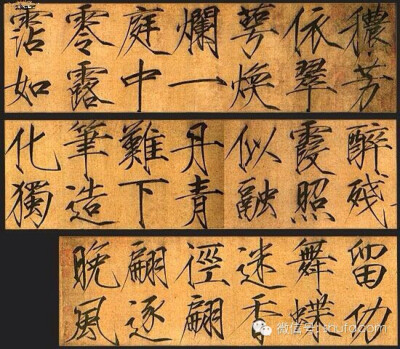 穠芳
依翠
萼煥
爛一
庭中
零露
霑如
醉殘
霞照
似融
丹青
難下
筆造
化獨
留功
舞蝶
迷香
徑翩
翩逐
晚風